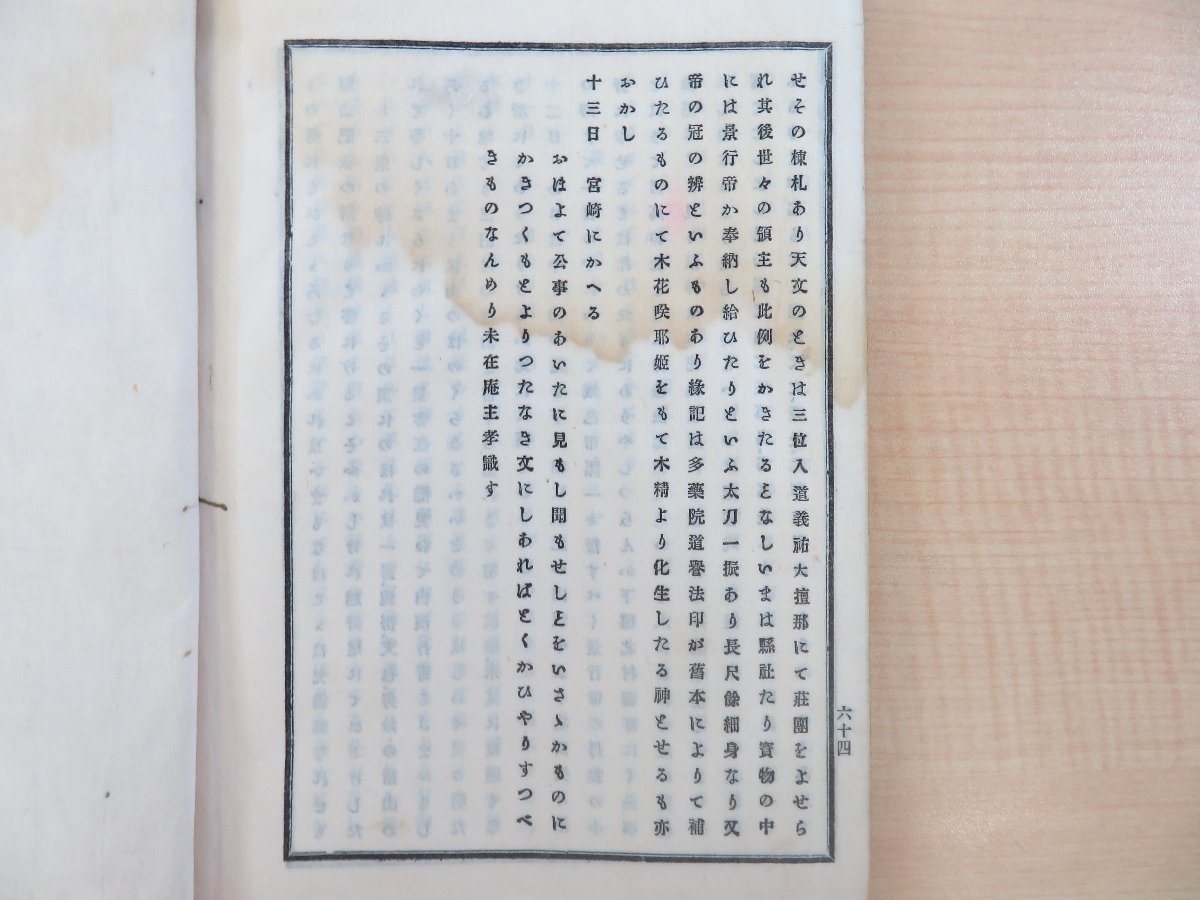 せその棟札あり天文のときは三位入道義祐大擅那にて莊園をよせら
れ其後世々の領主も此例をかきたるとなしいまは縣社たり寶物の中
には景行帝か奉納し給ひたりといふ太刀一振あり長尺餘細身なり又
帝の冠の辨といふものあり緣記は多藥院道譽法印が舊本によりて補
ひたるものにて木花咲耶姬をもて木精より化生したる神とせるも亦
おかし
十三日 宮崎にかへる
おほよて公事のあいたに見もし聞もせしとをいさゝかものに
かきつくもとよりつたなき文にしあればとくかひやりすつべ
きものなんめり未在庵主孝識す
六十四